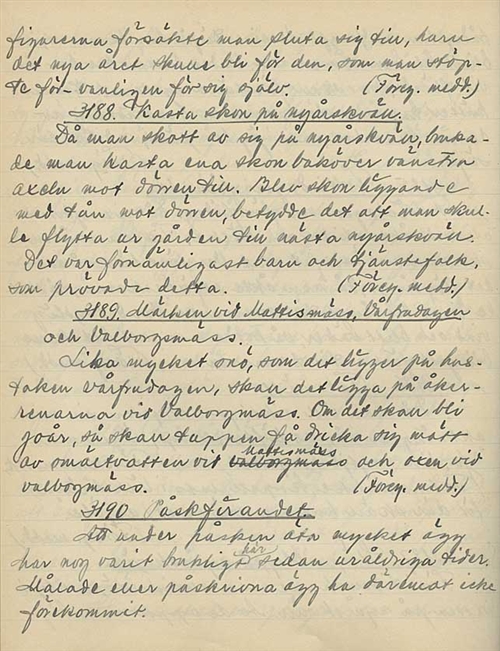 figurerna försökte man sluta sig till, huru
det nya året skulle bli för den, som man stöp-
te för – vanligen för sig själv. (Föreg. medd.)
3188. Kasta skon på nyårskväll.
Då man skott av sig på nyårskväll, bruka-
de man kasta ena skon bakover vänstra
axeln mot dörren till. Blev skon liggande
med tån mot dörren, betydde det att man skul-
le flytta ur gården till nästa nyårskväll.
Det var förnämligast barn och tjänstefolk,
som prövade detta. (Föreg. medd.)
3189. Märken vid Mattismäss, Vårfrudagen
och Valborgsmäss.
Lika mycket snö, som det ligger på hus-
taken vårfrudagen, skall det ligga på åker-
renarna vid Valborgmäss. Om det skall bli
goår, så skall tuppen få dricka sig mätt
av smältvatten vid Mattismäss och oxen vid
valborgmäss. (Föreg. medd.)
3190 Påskfirandet.
Att under påsken äta mycket ägg
har nog varit brukligt här sedan uråldriga tider.
Målade eller påskrivna ägg ha däremot icke
förekommit.